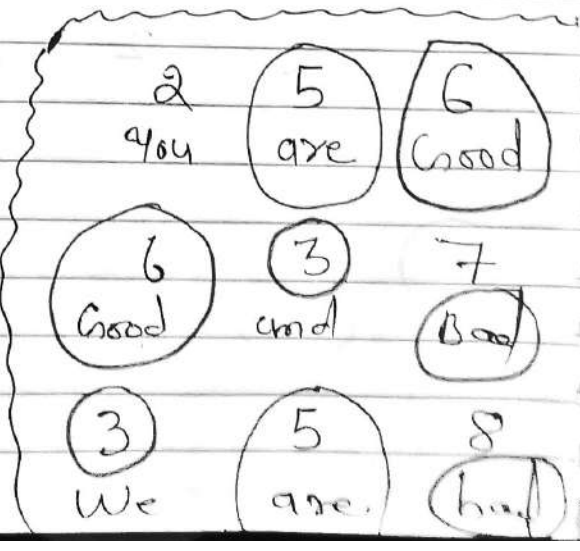 2 5 6
You are Good
6 3 7
Good and Bad
3 5 8
We are